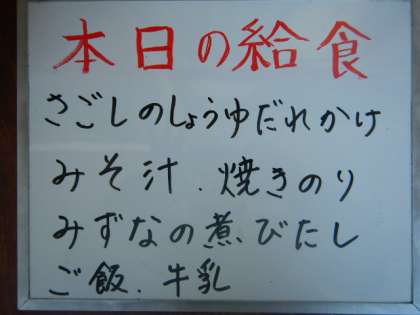 本日の給食
さごしのしょうゆだれかけ
みそ汁.焼きのり
みずなの煮びたし
ご飯.牛乳